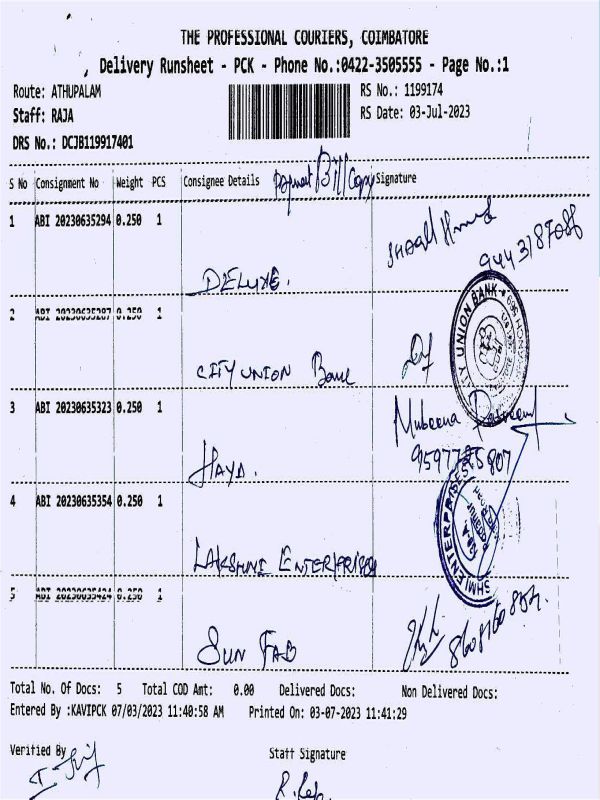 THE PROFESSIONAL COURIERS, COIMBATORE
Delivery Runsheet - PCK - Phone No.:0422-3505555 - Page No.:1
Route: ATHUPALAM RS No.: 1199174
Staff: RAJA RS Date: 03-Jul-2023
DRS No.: DCJB119917401
S No Consignment No Weight PCS Consignee Details Bill Copy Signature
1 ABI 20230635294 0.250 1
DELUXE.
2 ABI 20230635287 0.250 1
CITY UNION BANK
CITY UNION Bank
3 ABI 20230635323 0.250 1 Mubeena
HAYA.
4 ABI 20230635354 0.250 1
SHMI ENTERPRISES
LAKSHMI ENTERPRISES
5 ABI 20230635424 0.250 1
SUN FAB
Total No. Of Docs: 5 Total COD Amt: 0.00 Delivered Docs: Non Delivered Docs:
Entered By :KAVIPCK 07/03/2023 11:40:58 AM Printed On: 03-07-2023 11:41:29
Verified By Staff Signature